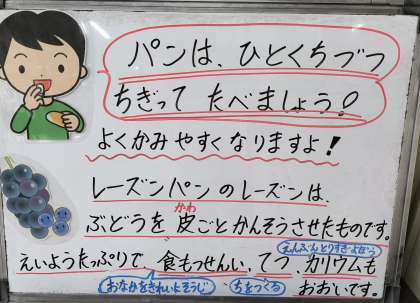 パンは、ひとくちづつ
ちぎって たべましょう!
よくかみやすくなりますよ!
レーズンパンのレーズンは、
かわ
ぶどうを皮ごとかんそうさせたものです。
えんぶんとりすぎよぼう
えいようたっぷりで 食もつせんい、てつ、カリウムも
おなかをきれいにそうじ ちをつくる おおいです。